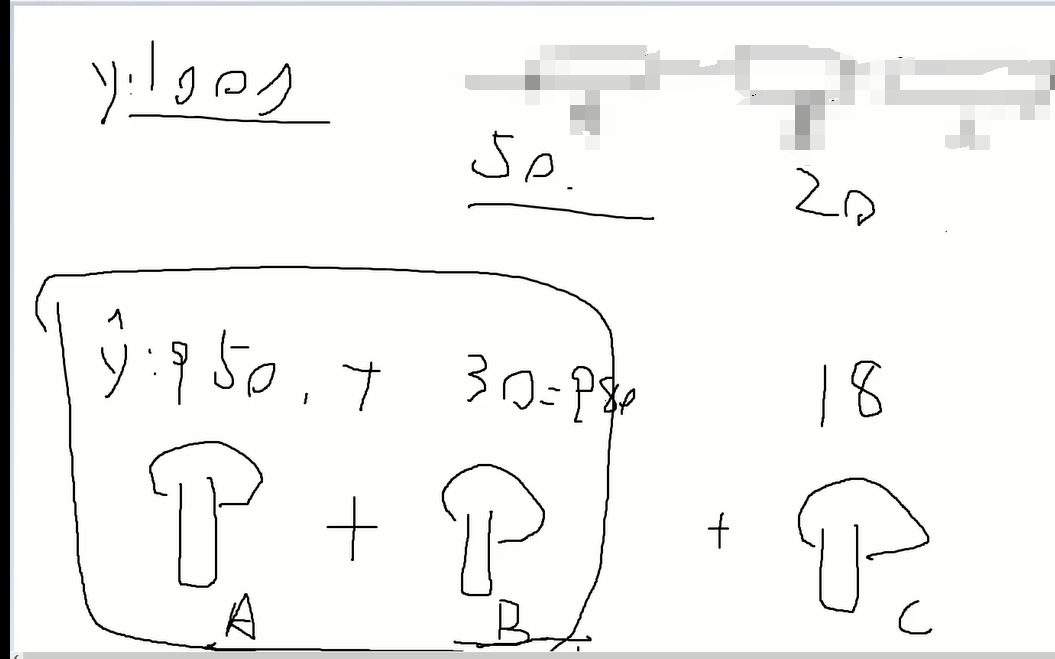 y:1000
50.
20
ŷ:950, + 30=980
18
+ +
A B C